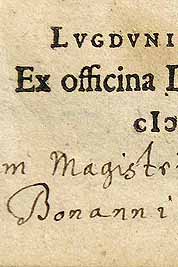 LVGDVNI
Ex officina
cIↄ
m Magistri
Bonanni